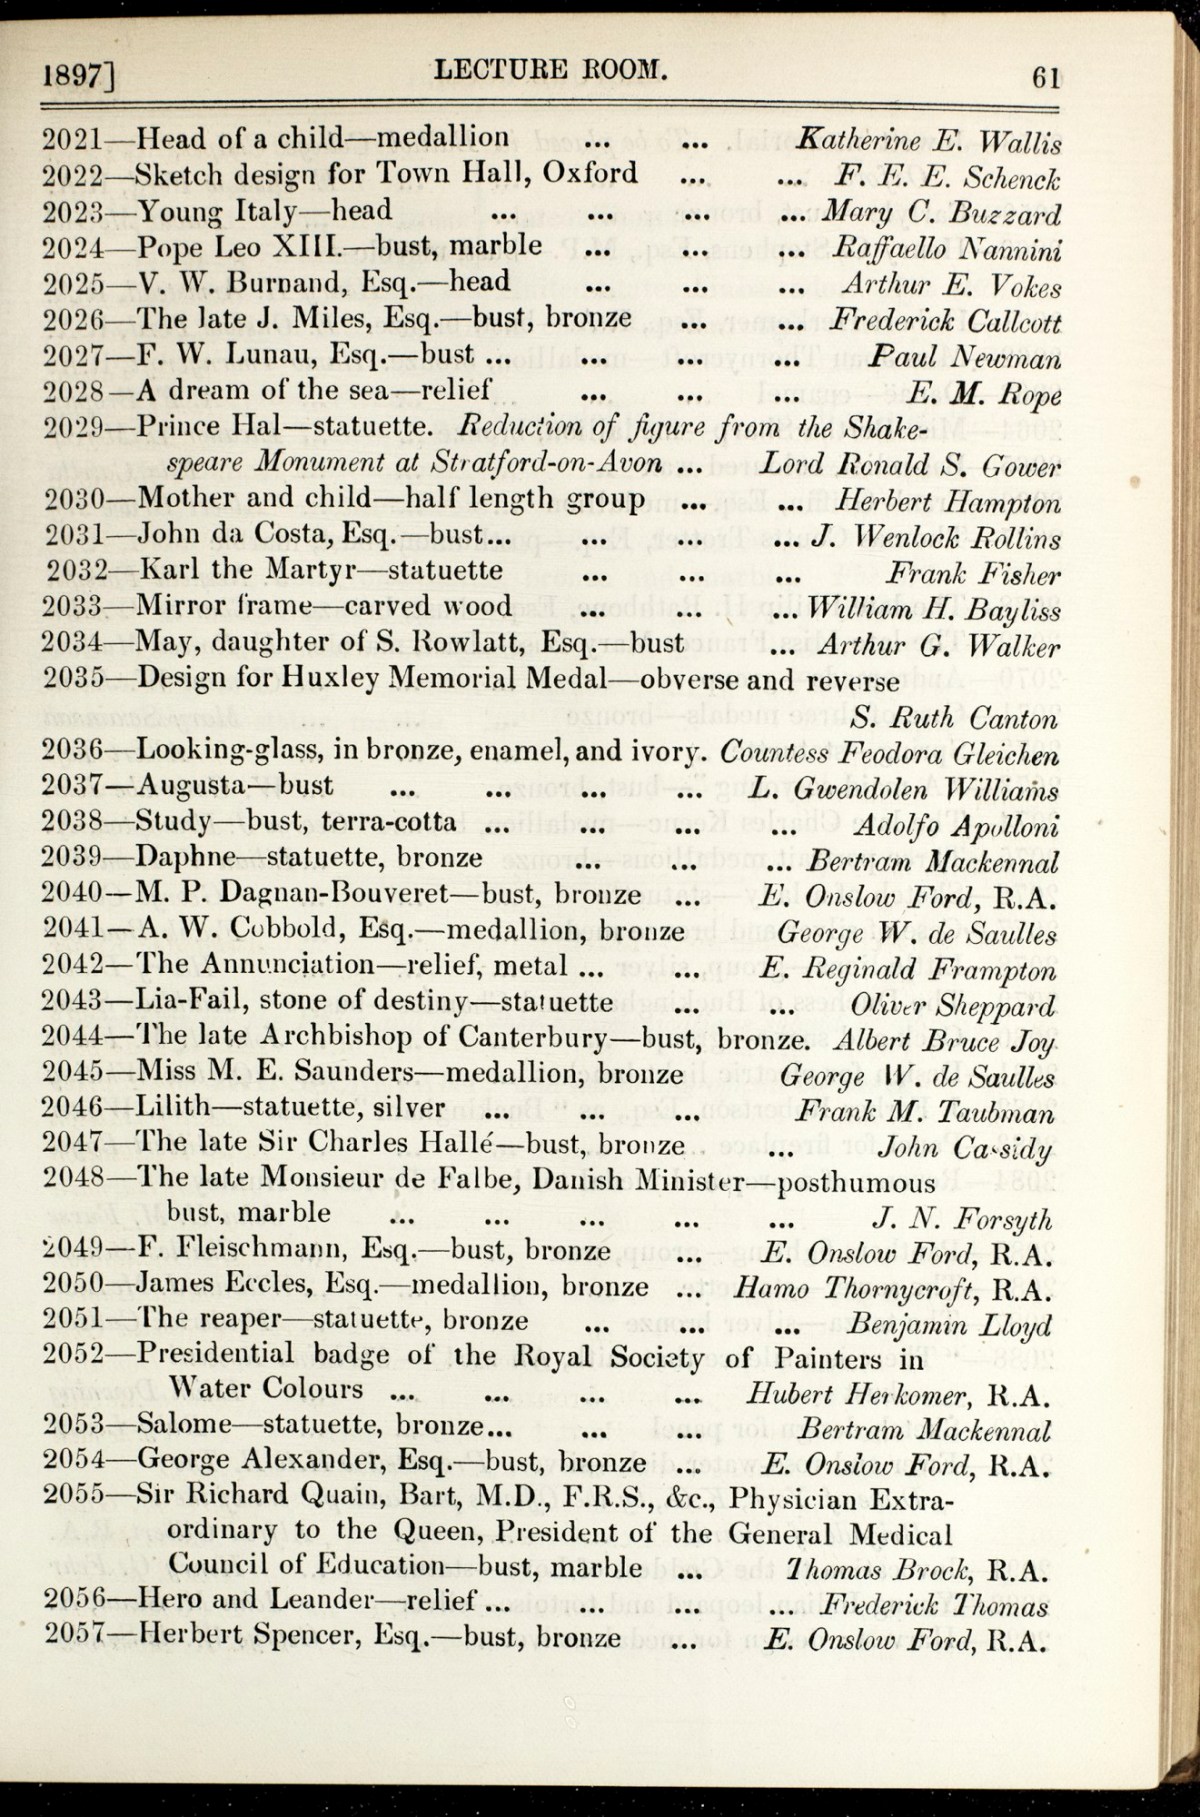 1897] LECTURE ROOM. 61
2021—Head of a child—medallion ... ... Katherine E. Wallis
2022—Sketch design for Town Hall, Oxford ... ... F. E. E. Schenck
2023—Young Italy—head ... ... ... ... Mary C. Buzzard
2024—Pope Leo XIII.—bust, marble ... ... ... Raffaello Nannini
2025—V. W. Burnand, Esq.—head ... ... ... Arthur E. Vokes
2026—The late J. Miles, Esq.—bust, bronze ... ... Frederick Callcott
2027—F. W. Lunau, Esq.—bust ... ... ... ... Paul Newman
2028—A dream of the sea—relief ... ... ... E. M. Rope
2029—Prince Hal—statuette. Reduction of figure from the Shake-
speare Monument at Stratford-on-Avon ... Lord Ronald S. Gower
2030—Mother and child—half length group ... ... Herbert Hampton
2031—John da Costa, Esq.—bust... ... ... ... J. Wenlock Rollins
2032—Karl the Martyr—statuette ... ... ... Frank Fisher
2033—Mirror frame—carved wood ... ... ... William H. Bayliss
2034—May, daughter of S. Rowlatt, Esq.—bust ... Arthur G. Walker
2035—Design for Huxley Memorial Medal—obverse and reverse
S. Ruth Canton
2036—Looking-glass, in bronze, enamel, and ivory. Countess Feodora Gleichen
2037—Augusta—bust ... ... ... ... L. Gwendolen Williams
2038—Study—bust, terra-cotta ... ... ... ... Adolfo Apolloni
2039—Daphne—statuette, bronze ... ... ... Bertram Mackennal
2040—M. P. Dagnan-Bouveret—bust, bronze ... E. Onslow Ford, R.A.
2041—A. W. Cobbold, Esq.—medallion, bronze George W. de Saulles
2042—The Annunciation—relief, metal ... ... E. Reginald Frampton
2043—Lia-Fail, stone of destiny—statuette ... ... Oliver Sheppard
2044—The late Archbishop of Canterbury—bust, bronze. Albert Bruce Joy
2045—Miss M. E. Saunders—medallion, bronze George W. de Saulles
2046—Lilith—statuette, silver ... ... ... Frank M. Taubman
2047—The late Sir Charles Hallé—bust, bronze ... John Cassidy
2048—The late Monsieur de Falbe, Danish Minister—posthumous
bust, marble ... ... ... ... ... J. N. Forsyth
2049—F. Fleischmann, Esq.—bust, bronze ... E. Onslow Ford, R.A.
2050—James Eccles, Esq.—medallion, bronze ... Hamo Thornycroft, R.A.
2051—The reaper—statuette, bronze ... ... ... Benjamin Lloyd
2052—Presidential badge of the Royal Society of Painters in
Water Colours ... ... ... ... Hubert Herkomer, R.A.
2053—Salome—statuette, bronze... ... ... Bertram Mackennal
2054—George Alexander, Esq.—bust, bronze ... E. Onslow Ford, R.A.
2055—Sir Richard Quain, Bart, M.D., F.R.S., &c., Physician Extra-
ordinary to the Queen, President of the General Medical
Council of Education—bust, marble ... Thomas Brock, R.A.
2056—Hero and Leander—relief ... ... ... ... Frederick Thomas
2057—Herbert Spencer, Esq.—bust, bronze ... E. Onslow Ford, R.A.